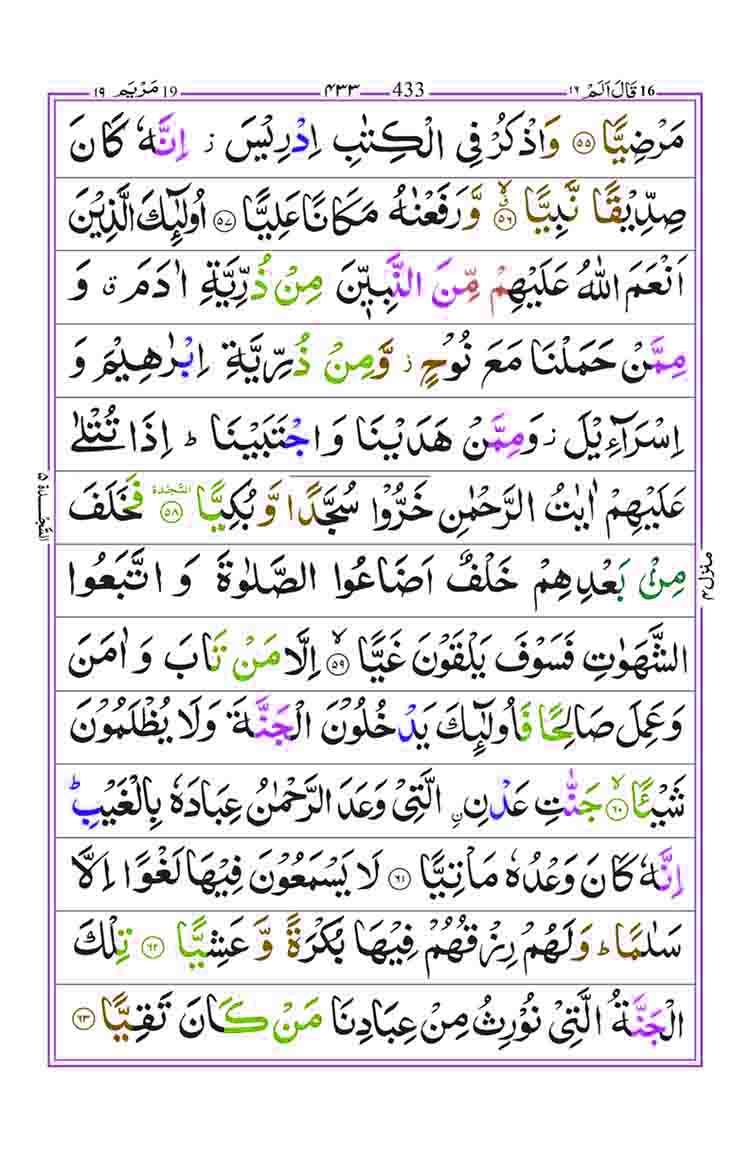 16 قَالَ اَلَمْ ١٦ 433 ۴۳۳ 19 مَرْیَم ١٩
مَرْضِیًّا ﴿۵۵﴾ وَاذْكُرْ فِی الْكِتٰبِ اِدْرِیْسَ ز اِنَّهٗ كَانَ
صِدِّیْقًا نَّبِیًّا ﴿۵۶﴾ وَّرَفَعْنٰهُ مَكَانًا عَلِیًّا ﴿۵۷﴾ اُولٰٓئِكَ الَّذِیْنَ
اَنْعَمَ اللّٰهُ عَلَیْهِمْ مِّنَ النَّبِیّٖنَ مِنْ ذُرِّیَّةِ اٰدَمَ ق وَ
مِمَّنْ حَمَلْنَا مَعَ نُوْحٍ ز وَّمِنْ ذُرِّیَّةِ اِبْرٰهِیْمَ وَ
اِسْرَآءِیْلَ ز وَمِمَّنْ هَدَیْنَا وَاجْتَبَیْنَا ط اِذَا تُتْلٰی
عَلَیْهِمْ اٰیٰتُ الرَّحْمٰنِ خَرُّوْا سُجَّدًا وَّبُكِیًّا ﴿۵۸﴾ السَّجْدَة فَخَلَفَ
السَّجْدَة ۵
مِنْۢ بَعْدِهِمْ خَلْفٌ اَضَاعُوا الصَّلٰوةَ وَاتَّبَعُوا
منزل ۴
الشَّهَوٰتِ فَسَوْفَ یَلْقَوْنَ غَیًّا ﴿۵۹﴾ اِلَّا مَنْ تَابَ وَاٰمَنَ
وَعَمِلَ صَالِحًا فَاُولٰٓئِكَ یَدْخُلُوْنَ الْجَنَّةَ وَلَا یُظْلَمُوْنَ
شَیْـًٔا ﴿۶۰﴾ جَنّٰتِ عَدْنِ ۣالَّتِیْ وَعَدَ الرَّحْمٰنُ عِبَادَهٗ بِالْغَیْبِ ط
اِنَّهٗ كَانَ وَعْدُهٗ مَاْتِیًّا ﴿۶۱﴾ لَا یَسْمَعُوْنَ فِیْهَا لَغْوًا اِلَّا
سَلٰمًا ط وَلَهُمْ رِزْقُهُمْ فِیْهَا بُكْرَةً وَّعَشِیًّا ﴿۶۲﴾ تِلْكَ
الْجَنَّةُ الَّتِیْ نُوْرِثُ مِنْ عِبَادِنَا مَنْ كَانَ تَقِیًّا ﴿۶۳﴾